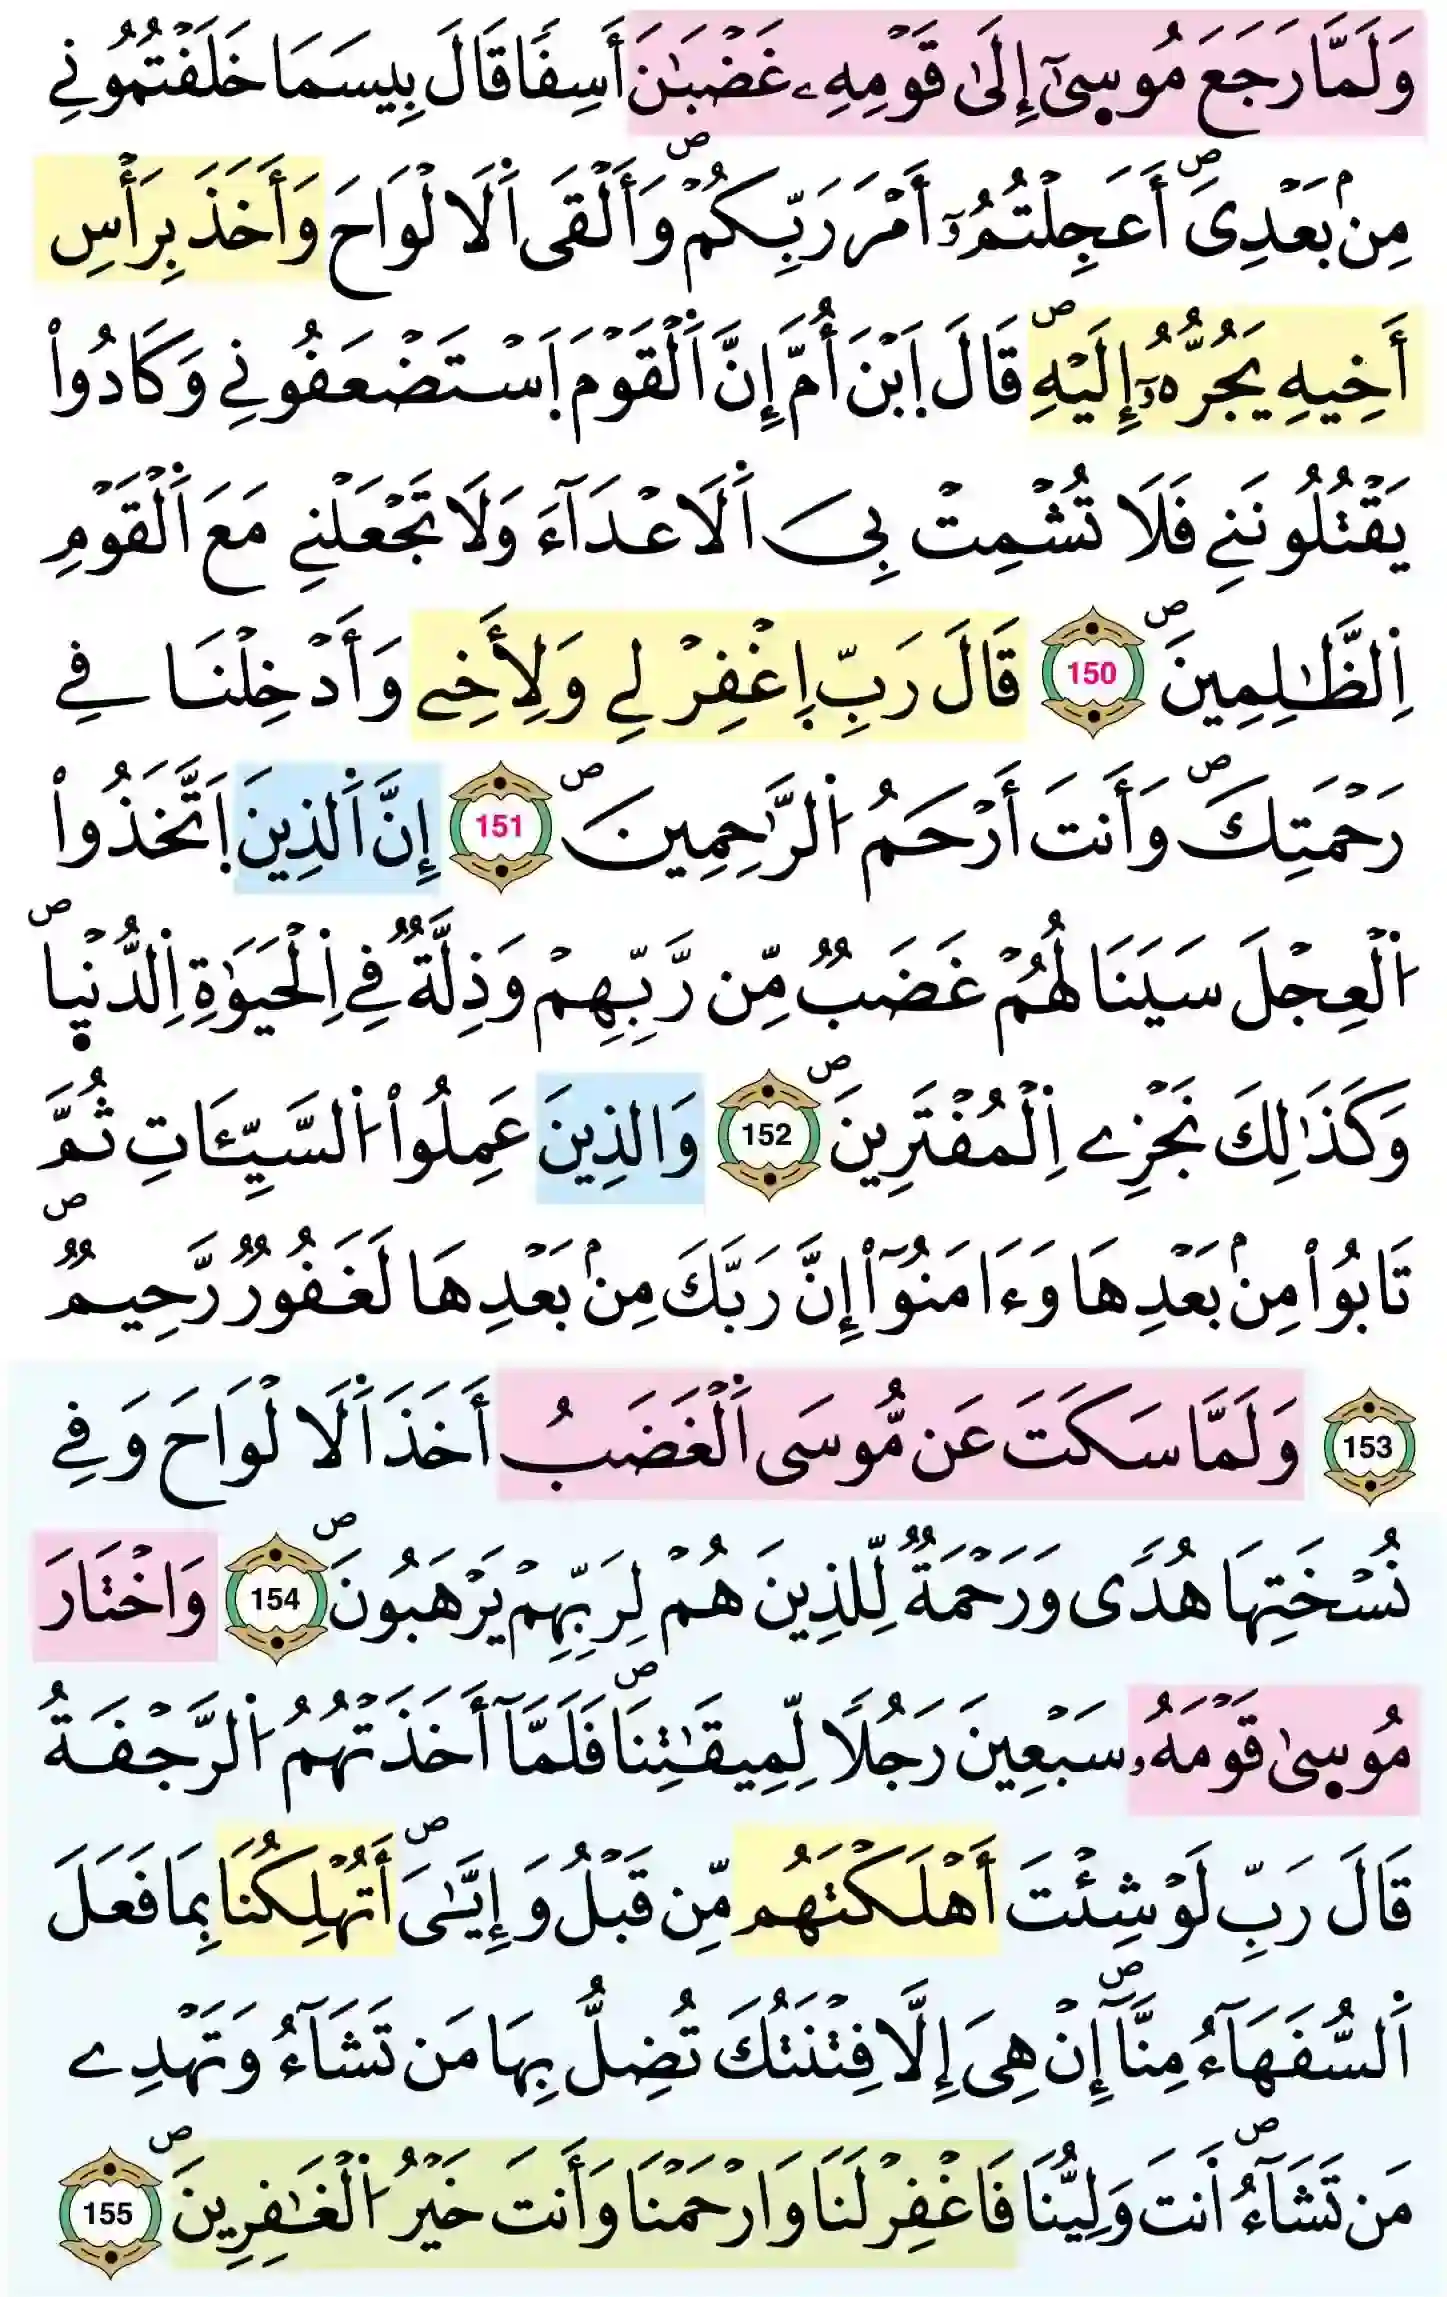 وَلَمَّا رَجَعَ مُوسٜىٰٓ إِلَىٰ قَوْمِهِۦ غَضْبَٰنَ أَسِفٗا قَالَ بِيسَمَا خَلَفْتُمُونِے
مِنۢ بَعْدِىَۖ أَعَجِلْتُمُۥٓ أَمْرَ رَبِّكُمْۖ وَأَلْقَى اَ۬لَالْوَاحَ وَأَخَذَ بِرَأْسِ
أَخِيهِ يَجُرُّهُۥٓ إِلَيْهِۖ قَالَ اَ۪بْنَ أُمَّ إِنَّ اَ۬لْقَوْمَ اَ۪سْتَضْعَفُونِے وَكَادُواْ
يَقْتُلُونَنِے فَلَا تُشْمِتْ بِىَ اَ۬لَاعْدَآءَ وَلَا تَجْعَلْنِے مَعَ اَ۬لْقَوْمِ
اِ۬لظَّٰلِمِينَۖ 150 قَالَ رَبِّ اِ۪غْفِرْ لِے وَلِأَخِے وَأَدْخِلْنَا فِے
رَحْمَتِكَۖ وَأَنتَ أَرْحَمُ اُ۬لرَّٰحِمِينَۖ 151 إِنَّ اَ۬لذِينَ اَ۪تَّخَذُواْ
اُ۬لْعِجْلَ سَيَنَالُهُمْ غَضَبٞ مِّن رَّبِّهِمْ وَذِلَّةٞ فِے اِ۬لْحَيَوٰةِ اِ۬لدُّنْيٜاۖ
وَكَذَٰلِكَ نَجْزِے اِ۬لْمُفْتَرِينَۖ 152 وَالذِينَ عَمِلُواْ اُ۬لسَّيِّـَٔاتِ ثُمَّ
تَابُواْ مِنۢ بَعْدِهَا وَءَامَنُوٓاْ إِنَّ رَبَّكَ مِنۢ بَعْدِهَا لَغَفُورٞ رَّحِيمٞۖ
153 وَلَمَّا سَكَتَ عَن مُّوسَى اَ۬لْغَضَبُ أَخَذَ اَ۬لَالْوَاحَ وَفِے
نُسْخَتِهَا هُدٗى وَرَحْمَةٞ لِّلذِينَ هُمْ لِرَبِّهِمْ يَرْهَبُونَۖ 154 وَاخْتَارَ
مُوسٜىٰ قَوْمَهُۥ سَبْعِينَ رَجُلٗا لِّمِيقَٰتِنَاۖ فَلَمَّآ أَخَذَتْهُمُ اُ۬لرَّجْفَةُ
قَالَ رَبِّ لَوْ شِئْتَ أَهْلَكْتَهُم مِّن قَبْلُ وَإِيَّٰىَۖ أَتُهْلِكُنَا بِمَا فَعَلَ
اَ۬لسُّفَهَآءُ مِنَّآۖ إِنْ هِىَ إِلَّا فِتْنَتُكَ تُضِلُّ بِهَا مَن تَشَآءُ وَتَهْدِے
مَن تَشَآءُۖ اَنتَ وَلِيُّنَا فَاغْفِرْ لَنَا وَارْحَمْنَا وَأَنتَ خَيْرُ اُ۬لْغَٰفِرِينَۖ 155